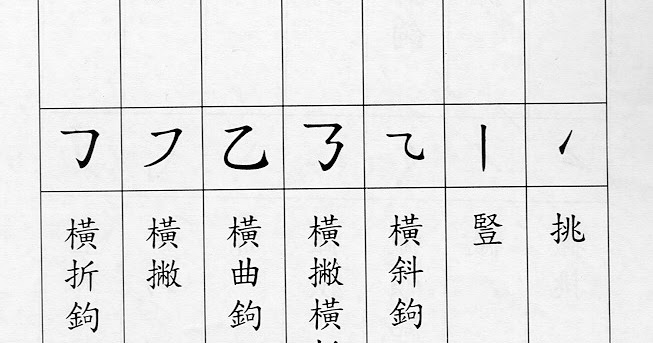 ㇀
挑
丨
豎
⺄
橫斜鉤
㇡
橫撇橫
乙
橫曲鉤
㇇
橫撇
𠃌
橫折鉤